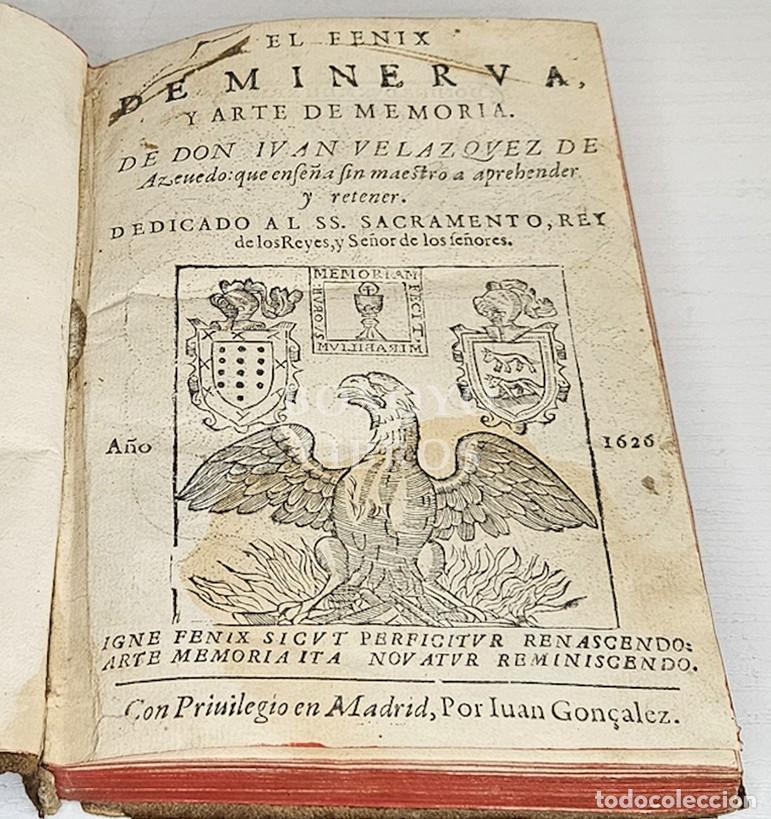 EL FENIX
DE MINERVA,
Y ARTE DE MEMORIA.
DE DON IVAN VELAZQVEZ DE
Azeuedo: que enseña sin maestro a aprehender
y retener.
DEDICADO AL SS. SACRAMENTO, REY
de los Reyes, y Señor de los señores.
MEMORIAM
FECIT
MIRABILIUM
SUORUM
Año 1626
IGNE FENIX SICVT PERFICITVR RENASCENDO:
ARTE MEMORIA ITA NOVATVR REMINISCENDO.
Con Priuilegio en Madrid, Por Iuan Gonçalez.
todocoleccion